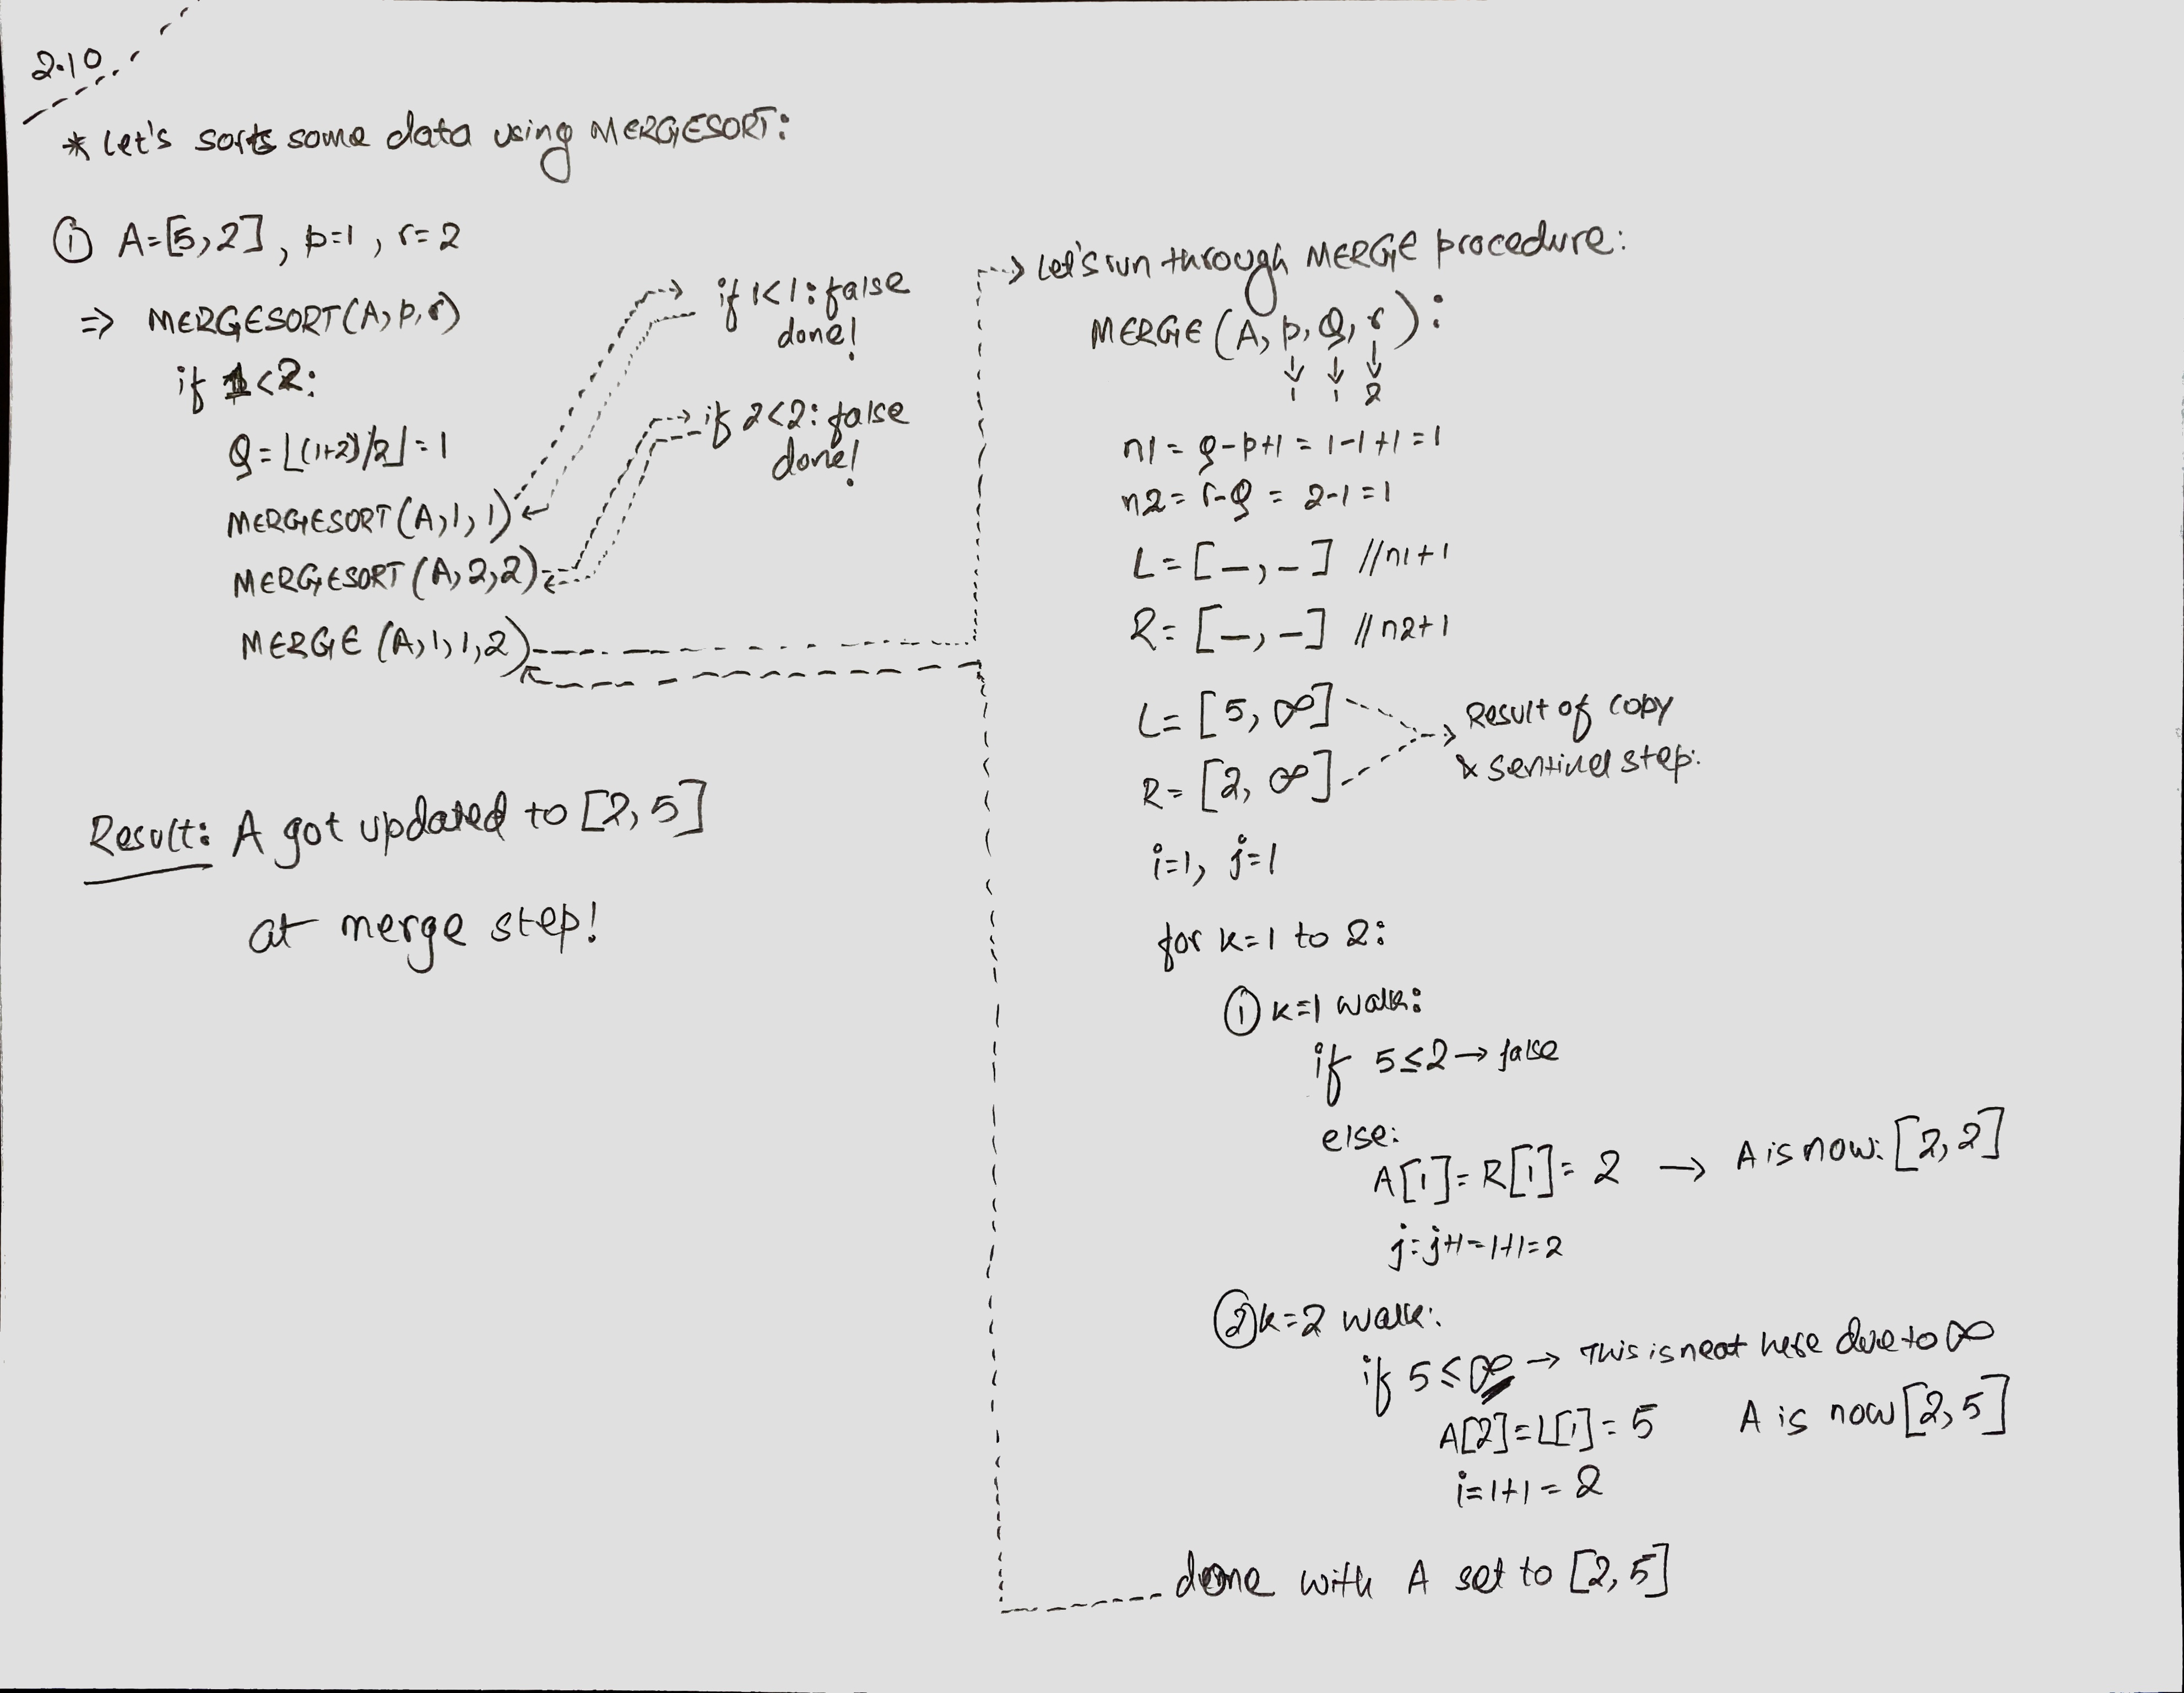 2.10
* Let's sorts some data using MERGESORT:
① A=[5,2], p=1, r=2
⇒ MERGESORT(A,p,r)
if 1<2:
Q=⌊(1+2)/2⌋=1
MERGESORT(A,1,1)
MERGESORT(A,2,2)
MERGE(A,1,1,2)
if 1<1: false
done!
if 2<2: false
done!
Result: A got updated to [2,5]
at merge step!
Let's run through MERGE procedure:
MERGE(A, p, Q, r):
↓ ↓ ↓
1 1 2
n1 = Q-p+1 = 1-1+1=1
n2 = r-Q = 2-1=1
L=[–,–] //n1+1
R=[–,–] //n2+1
L=[5, ∞]
R=[2, ∞]
Result of copy
& sentinel step.
i=1, j=1
for k=1 to 2:
① k=1 walk:
if 5≤2→ false
else:
A[1]=R[1]=2 → A is now: [2,2]
j=j+1=1+1=2
② k=2 walk:
if 5≤∞ → This is neat here due to ∞
A[2]=L[1]=5 A is now [2,5]
i=1+1=2
done with A set to [2,5]